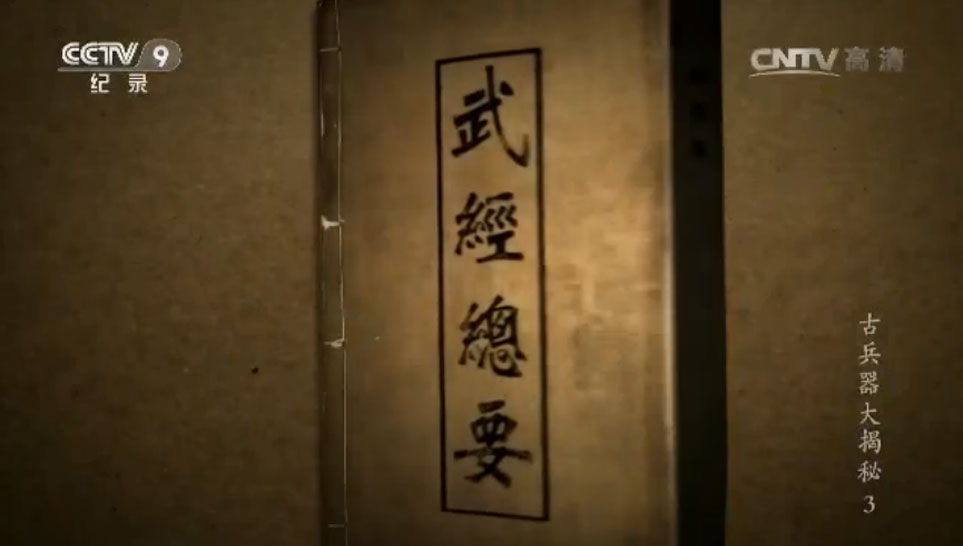 CCTV 9
纪录
CNTV 高清
武經總要
古兵器大揭秘 3